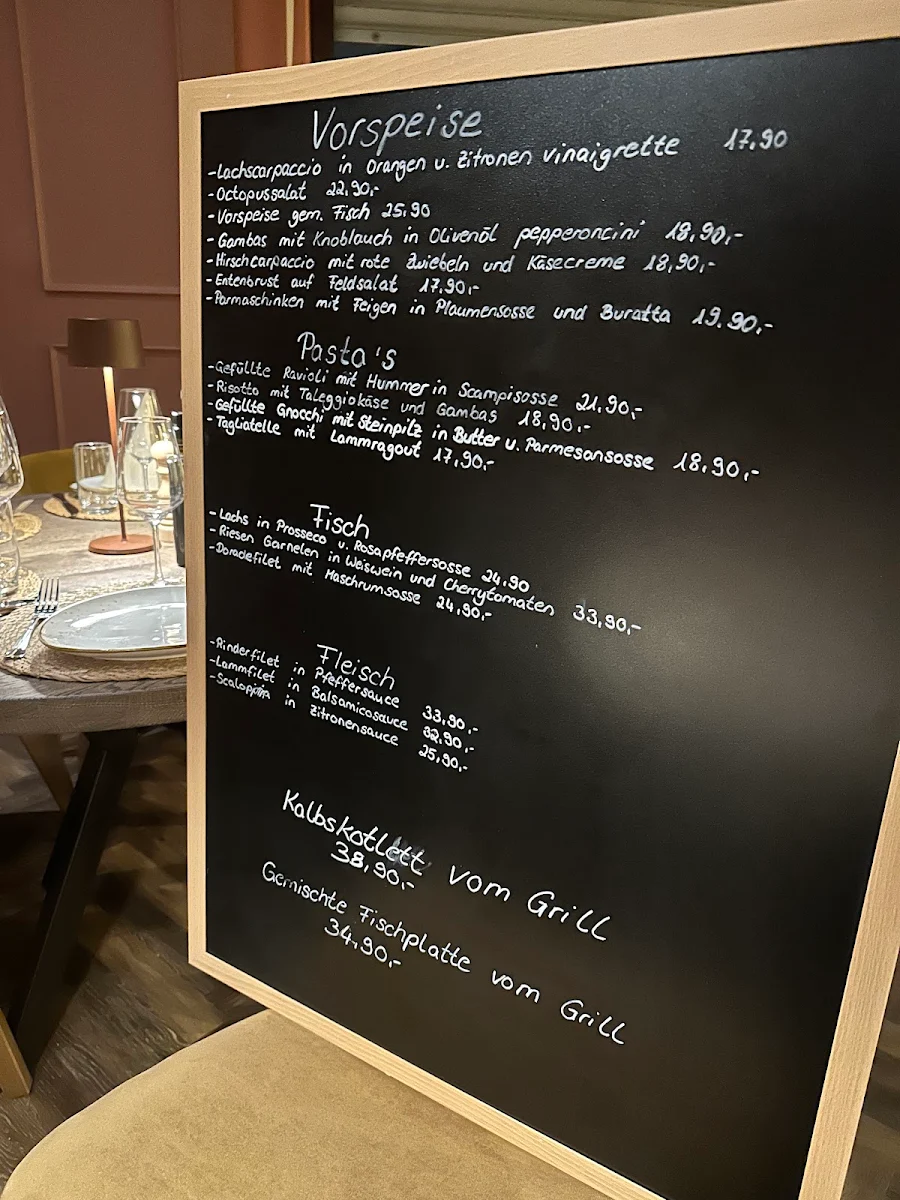 Vorspeise
-Lachscarpaccio in Orangen u. Zitronen vinaigrette 17.90
-Octopussalat 22.90,-
-Vorspeise gem. Fisch 25.90
-Gambas mit Knoblauch in Olivenöl pepperoncini 18,90,-
-Hirschcarpaccio mit rote Zwiebeln und Käsecreme 18,90,-
-Entenbrust auf Feldsalat 17.90,-
-Parmaschinken mit Feigen in Plaumensosse und Buratta 19.90,-
Pasta's
-Gefüllte Ravioli mit Hummer in Scampisosse 21,90,-
-Risotto mit Taleggiokäse und Gambas 18,90,-
-Gefüllte Gnocchi mit Steinpilz in Butter u. Parmesansosse 18,90,-
-Tagliatelle mit Lammragout 17,90,-
Fisch
-Lachs in Prosseco u. Rosapfeffersosse 24,90
-Riesen Garnelen in Weiswein und Cherrytomaten 33,90,-
-Doradefilet mit Maschrumsosse 24,90,-
Fleisch
-Rinderfilet in Pfeffersauce 33,90,-
-Lammfilet in Balsamicosauce 32,90,-
-Scaloppina in Zitronensauce 25,90,-
Kalbskotlett vom Grill
38,90,-
Gemischte Fischplatte vom Grill
34,90,-